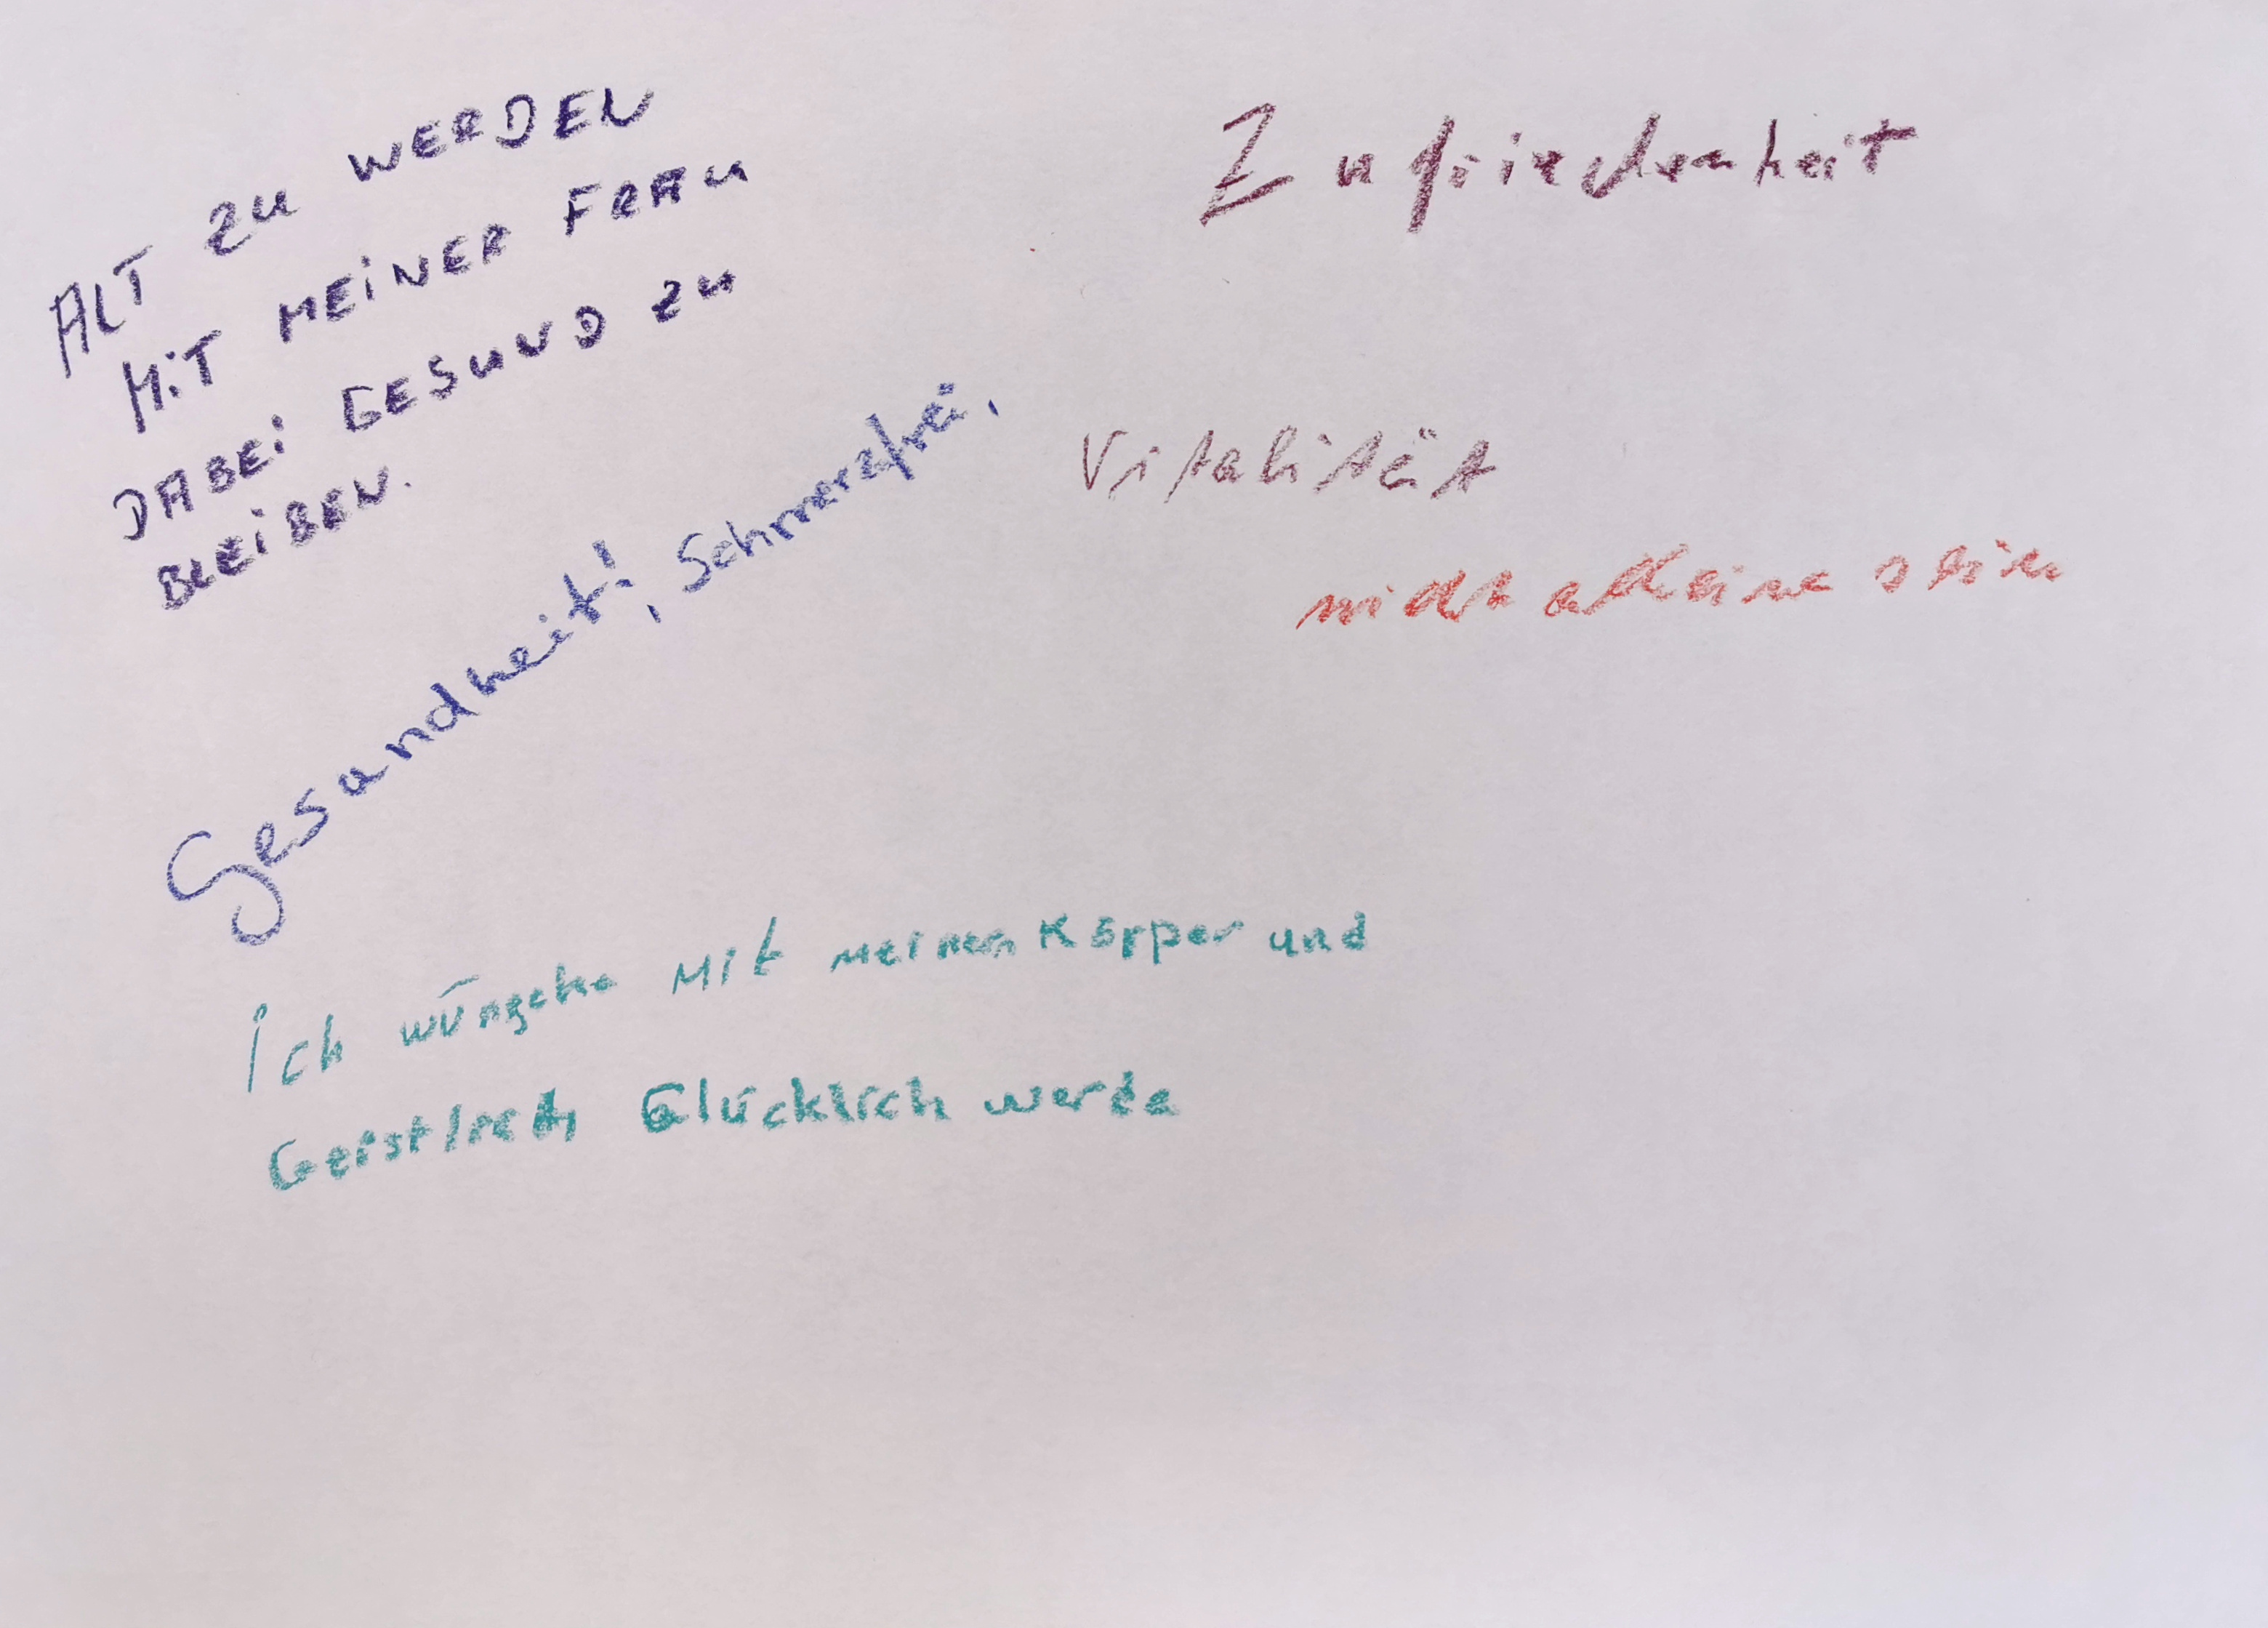 ALT ZU WERDEN
MIT MEINER FRAU
DABEI GESUND ZU
BLEIBEN.
Zufriedenheit
Gesundheit!, Schmerzfrei,
Vitalität
nicht alleine sein
Ich wünsche Mit meinen Körper und
Geistlich Glücklich werde